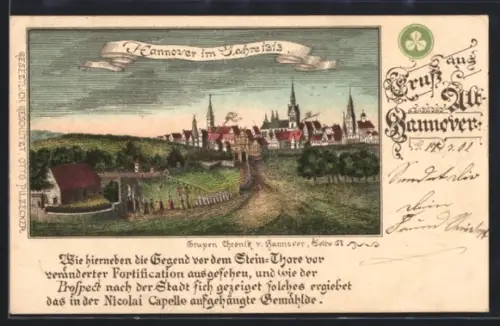 Hannover im Jahre 1313
Gruß aus
Alt-
Hannover.
GESETZLICH GESCHÜTZT. OTTO PULZECKER.
Grupen Chronik v. Hannover, Seite 61
Wie hierneben die Gegend vor dem Stein-Thore vor
veränderter Fortification ausgesehen, und wie der
Prospect nach der Stadt sich gezeiget solches ergiebet
das in der Nicolai Capelle aufgehängte Gemählde.